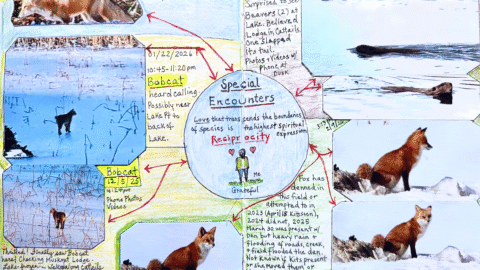 Surprised to see
Beavers (2) at
Lake. Believed
Lodge in Cattails.
One slapped
its tail.
Photos + Videos w/
Phone at
Dusk
01/22/2026
10:45-11:20pm
Bobcat
heard calling.
Possibly near
Lake Pt to
back of
Lake.
Special
Encounters
Love that transcends the boundaries
of species is the highest spiritual
expression
Reciprocity
Me
Grateful
Bobcat
12/5/25
Phone Photos
Videos
Thrilled! Finally saw Bobcat
Checking Muskrat Lodges
Fox has
denned in
this field or
attempted to in
2023 (April 8 Kits seen),
2024 did not, 2025
March 30 was present w/
Den but heavy rain +
flooding of roads, creek,
+ field flooded the den.
Not known if Kits present
or she moved them or